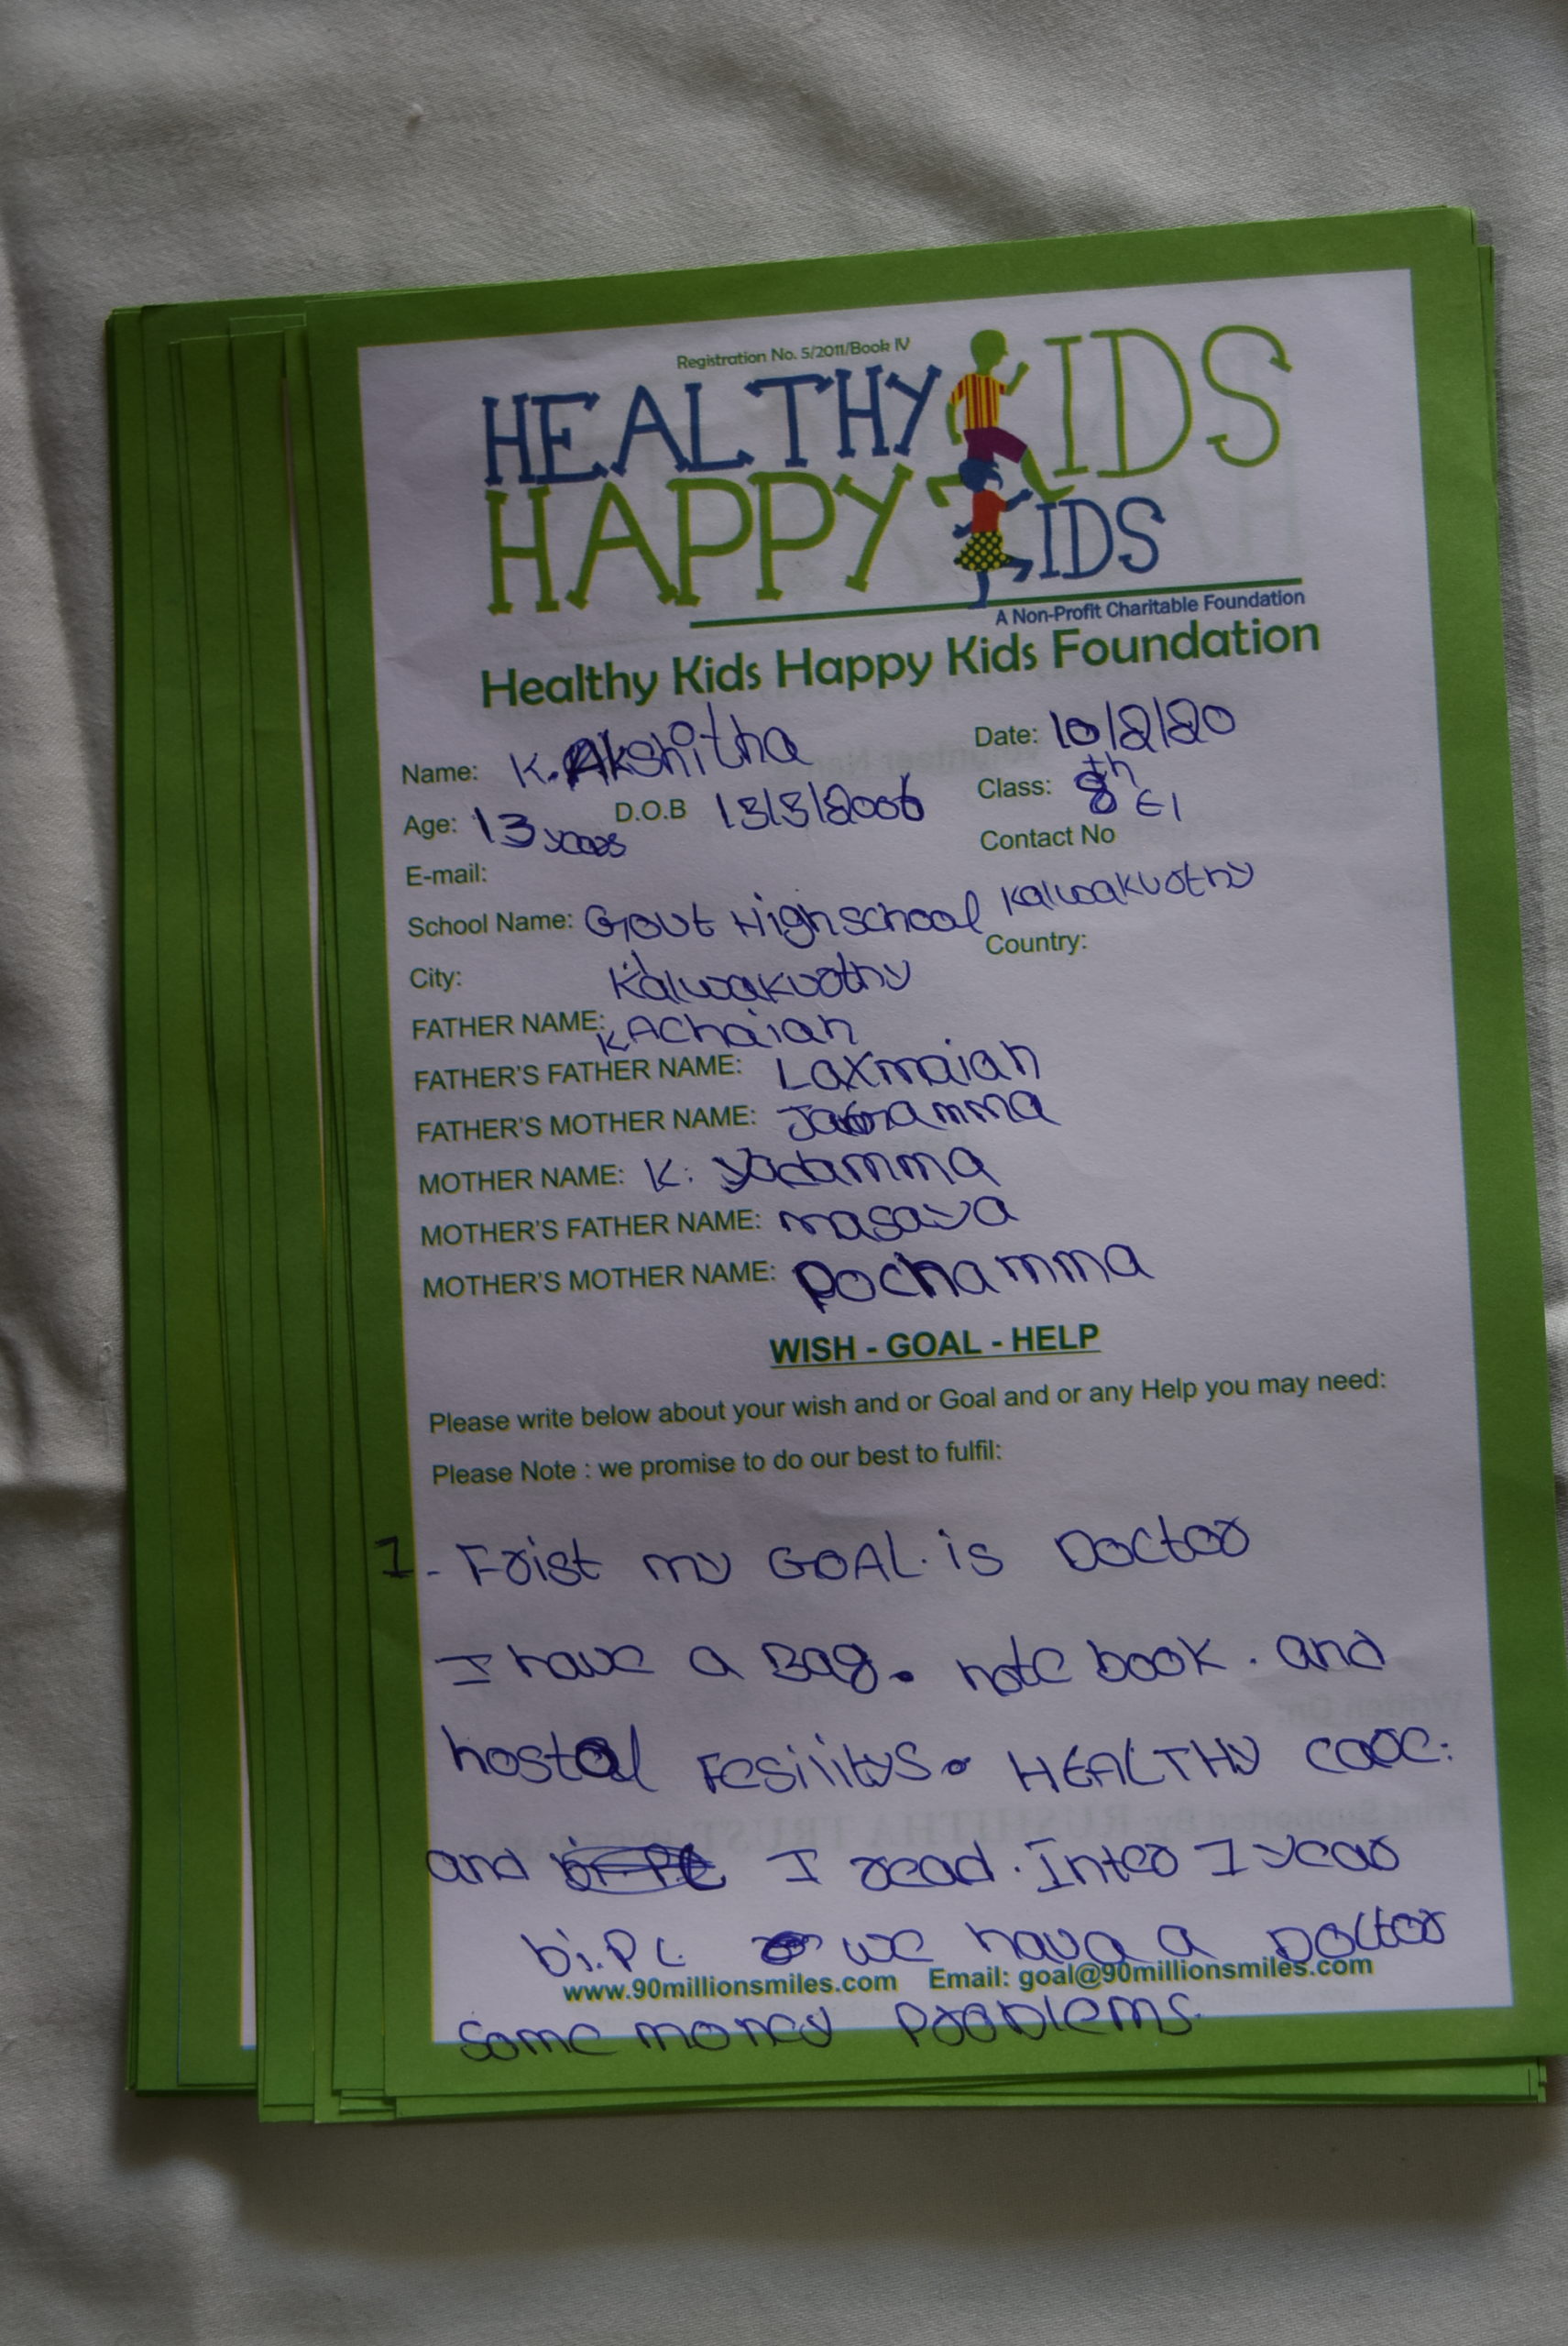 Registration No. 5/2011/Book IV
HEALTHY KIDS
HAPPY KIDS
A Non-Profit Charitable Foundation
Healthy Kids Happy Kids Foundation
Name: K. Akshitha Date: 10/2/20
Age: 13 years D.O.B 13/3/2006 Class: 8th E1
E-mail: Contact No
School Name: Govt High school Kalwakurthy
City: Kalwakurthy Country:
FATHER NAME: K Achaiah
FATHER'S FATHER NAME: Laxmaiah
FATHER'S MOTHER NAME:
MOTHER NAME: K. Yadamma
MOTHER'S FATHER NAME: masaya
MOTHER'S MOTHER NAME: Pochamma
WISH - GOAL - HELP
Please write below about your wish and or Goal and or any Help you may need:
Please Note : we promise to do our best to fulfil:
1 - Frist my GOAL. is Doctor
I have a Bag. note book. and
hostal Fesilitys. HEALTHY care.
and I read. Inter 1 year
bi.P.C. we have a Doctor
www.90millionsmiles.com Email: goal@90millionsmiles.com
some money Problems.